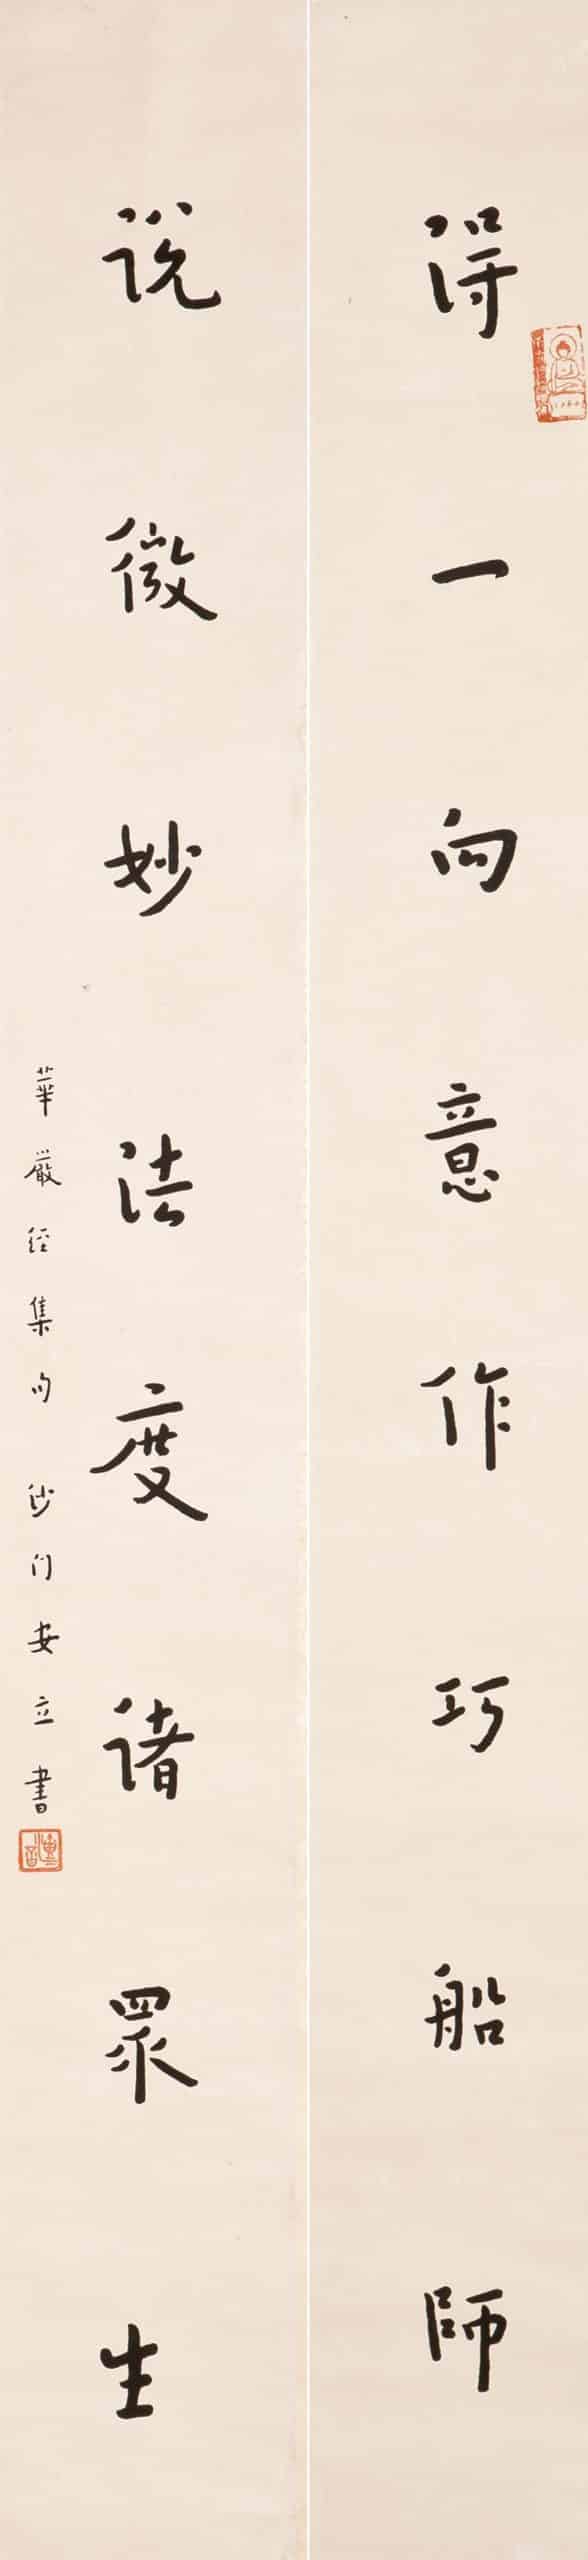 得一向意作巧船師
説微妙法度諸眾生
華嚴經集句 沙门安立書